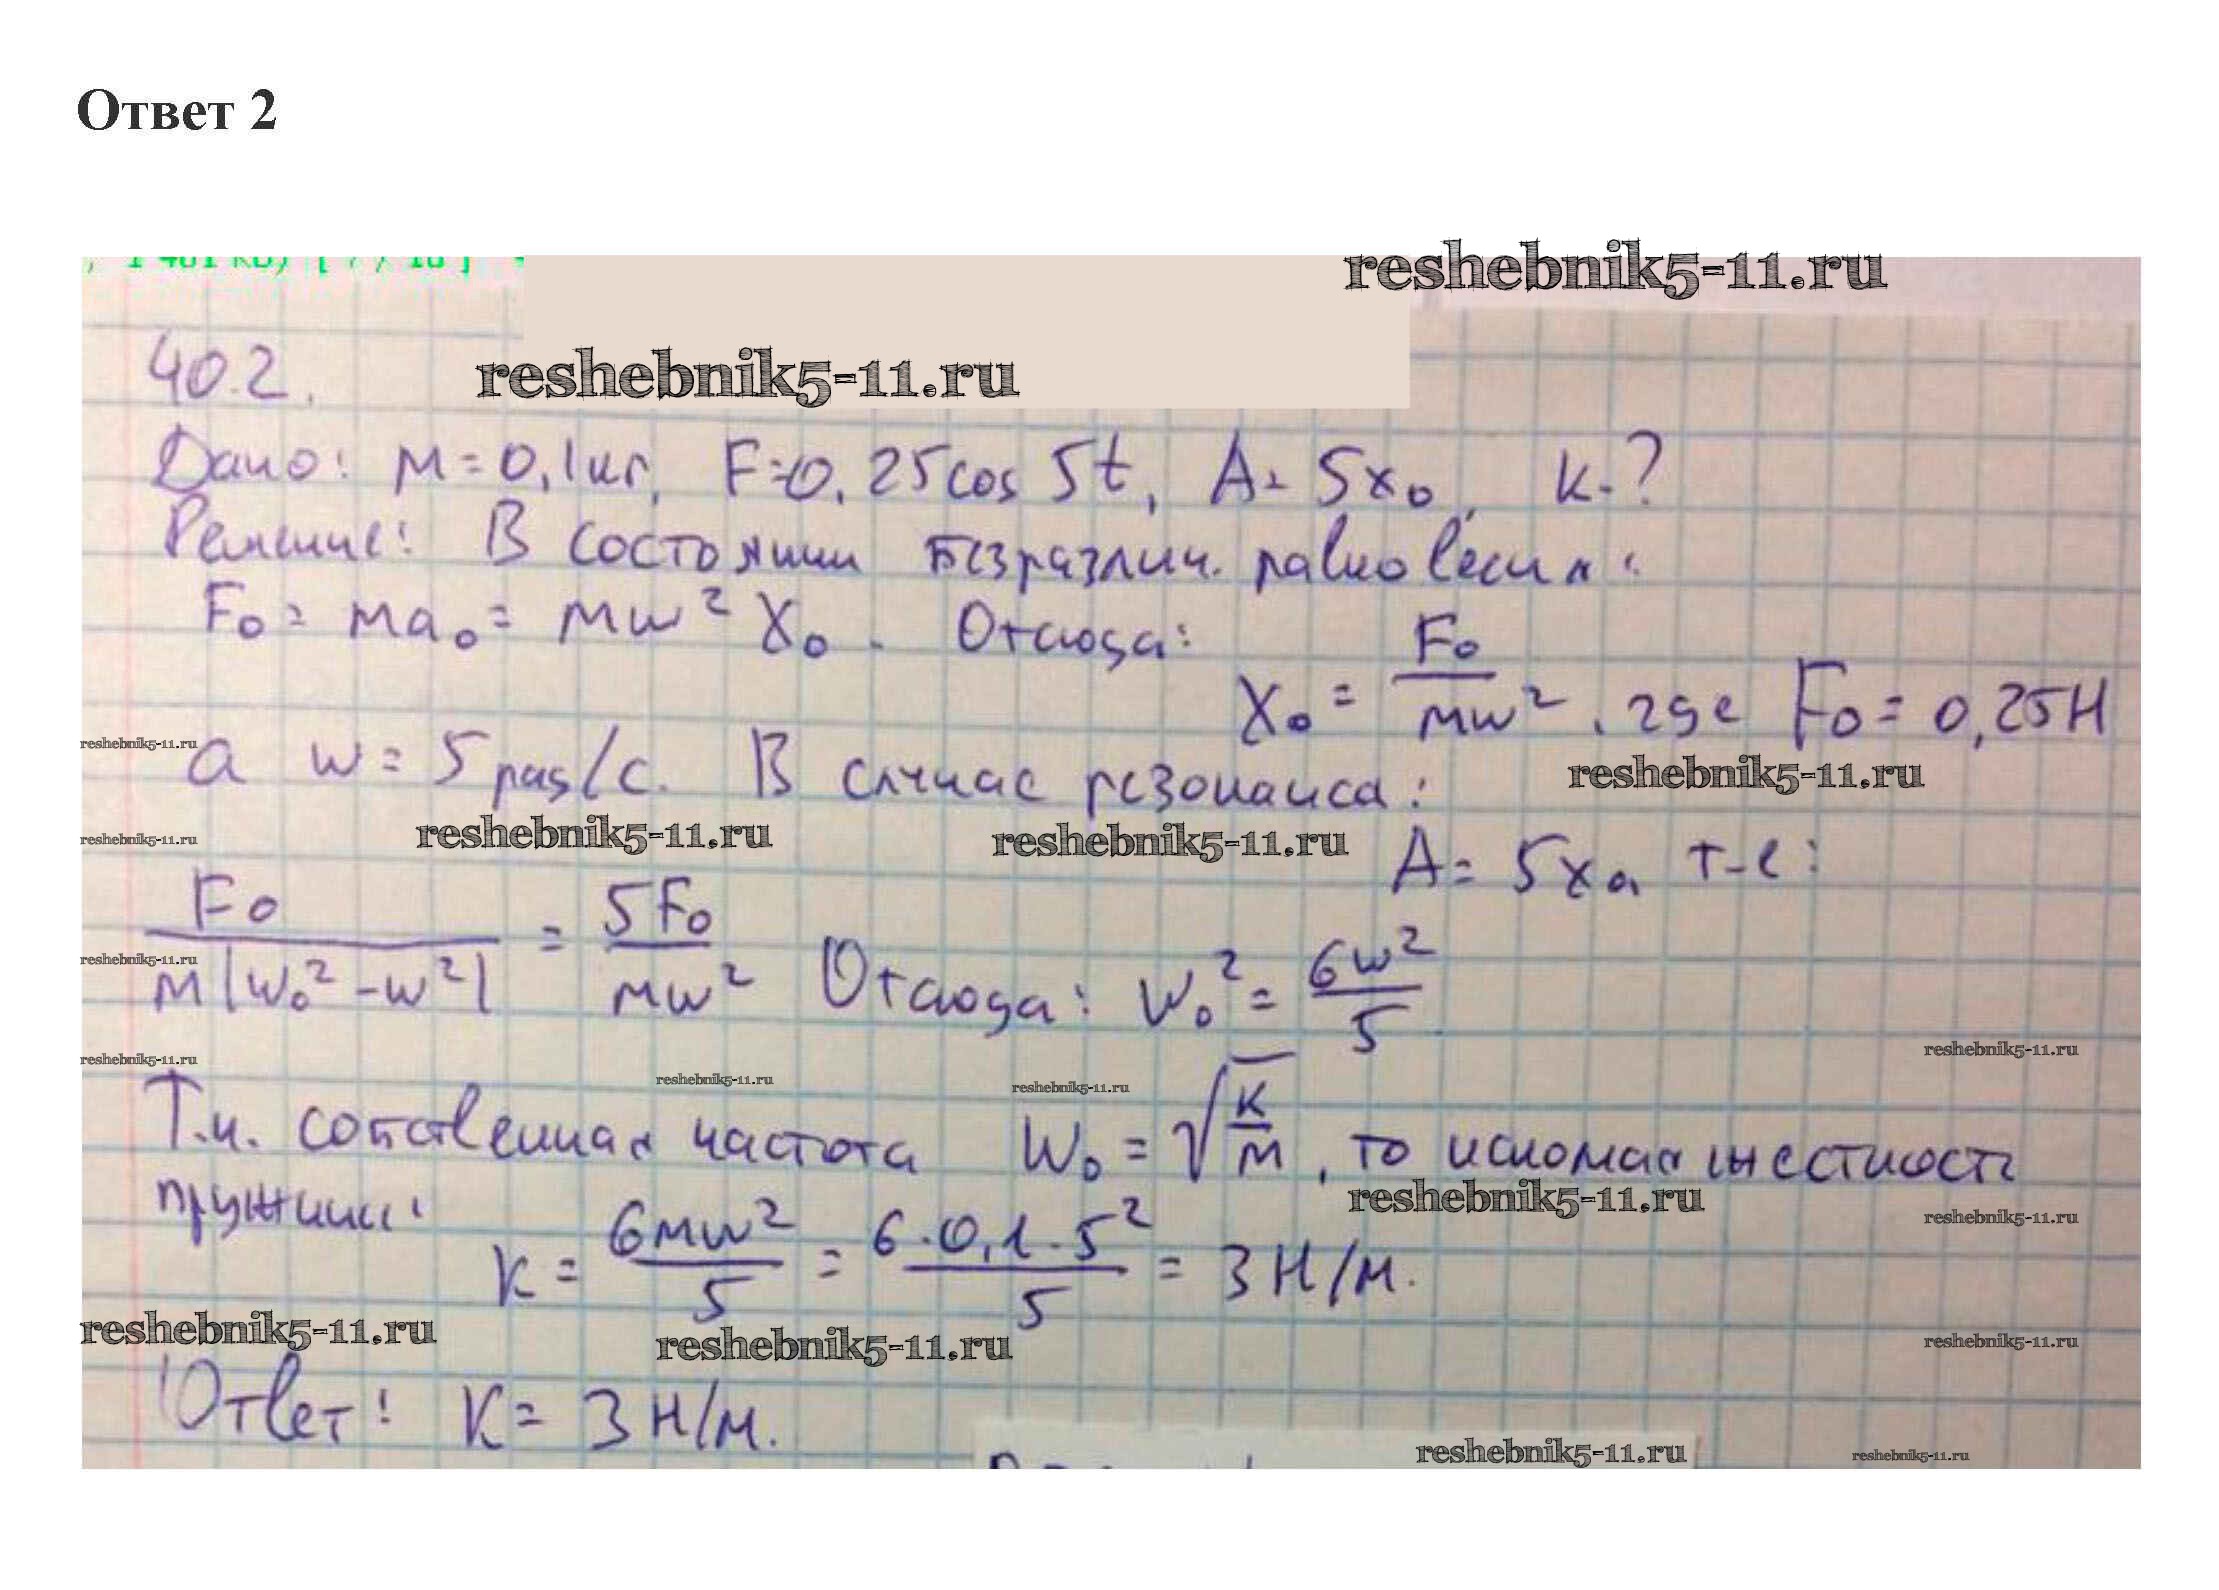 Ответ 2
reshebnik5-11.ru
40.2.
reshebnik5-11.ru
Дано: m = 0,1 кг, F = 0,25 cos 5t, A = 5x₀, k - ?
Решение: В состоянии безразлич. равновесия:
F₀ = ma₀ = mw²x₀. Отсюда:
x₀ = F₀/mw², где F₀ = 0,25 Н
reshebnik5-11.ru
а w = 5 рад/с. В случае резонанса:
reshebnik5-11.ru
reshebnik5-11.ru
reshebnik5-11.ru
reshebnik5-11.ru
A = 5x₀, т-е:
F₀/m|w₀² - w²| = 5F₀/mw² Отсюда: w₀² = 6w²/5
reshebnik5-11.ru
reshebnik5-11.ru
reshebnik5-11.ru
reshebnik5-11.ru
reshebnik5-11.ru
Т.к. собственная частота w₀ = √k/m, то искомая жесткость
reshebnik5-11.ru
пружины:
reshebnik5-11.ru
k = 6mw²/5 = 6·0,1·5²/5 = 3 Н/м.
reshebnik5-11.ru
reshebnik5-11.ru
reshebnik5-11.ru
Ответ: k = 3 Н/м.
reshebnik5-11.ru
reshebnik5-11.ru